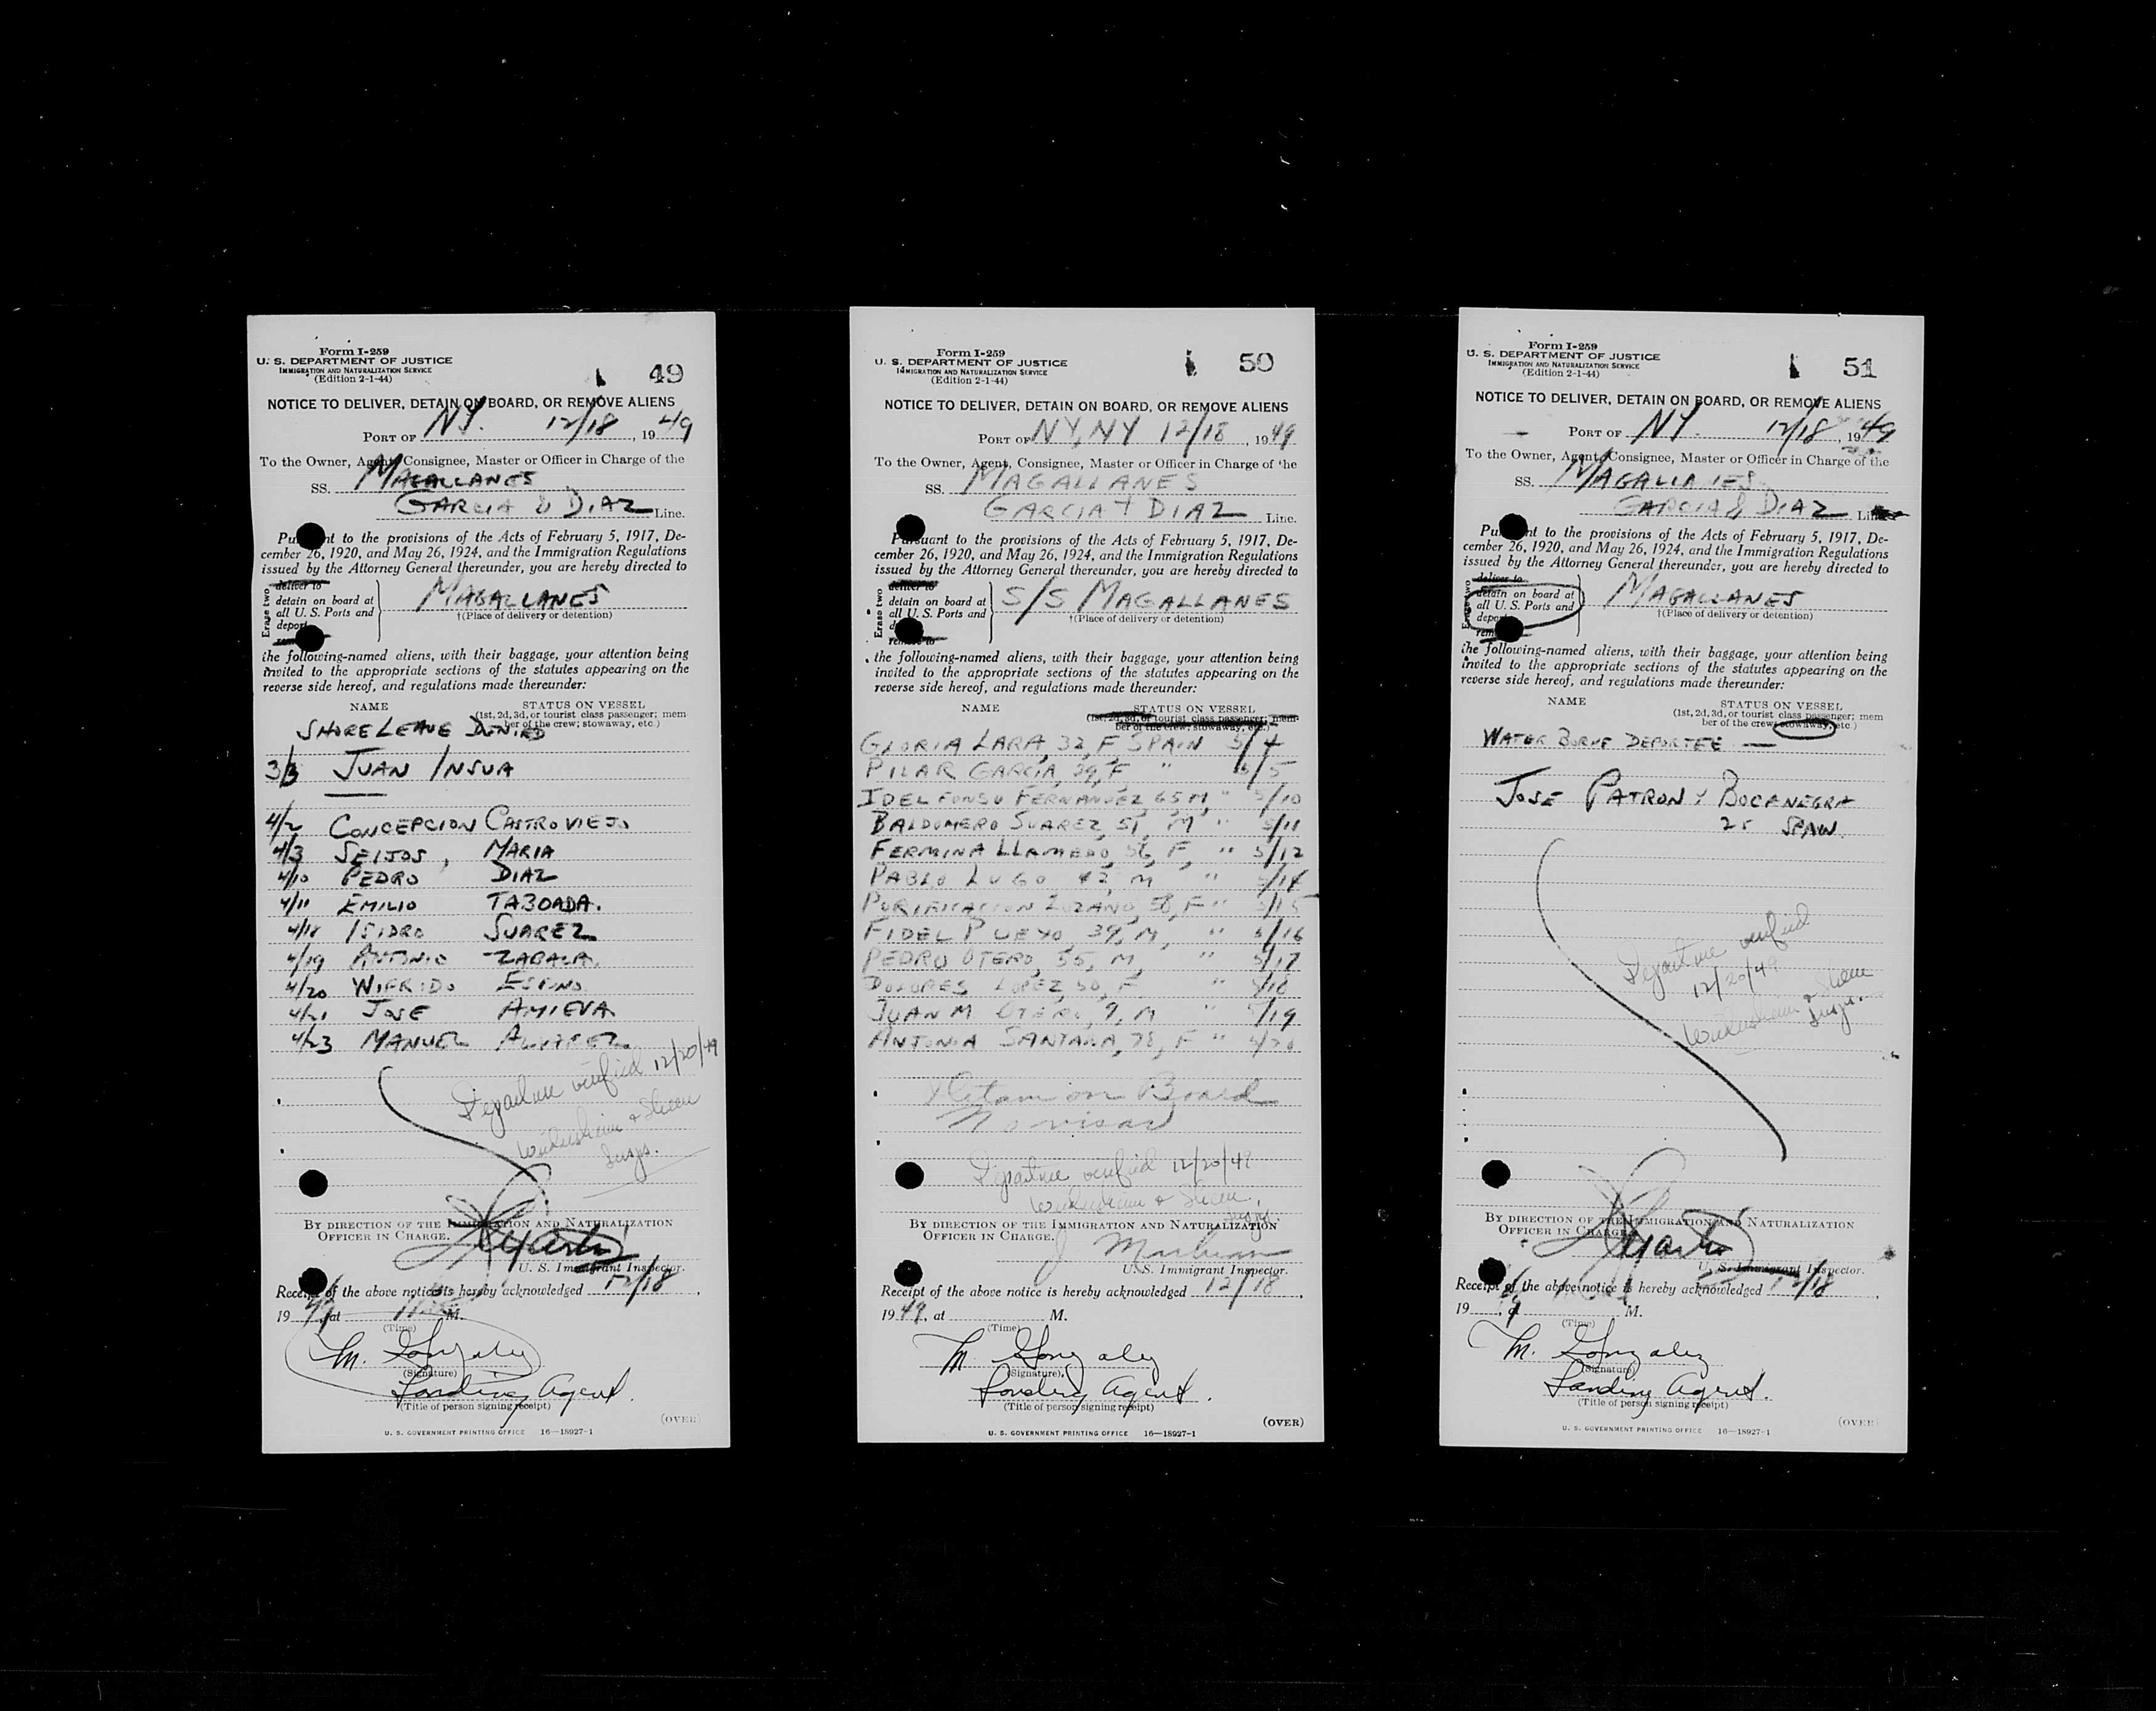 Form I-259
U. S. DEPARTMENT OF JUSTICE
IMMIGRATION AND NATURALIZATION SERVICE
(Edition 2-1-44)
49
NOTICE TO DELIVER, DETAIN ON BOARD, OR REMOVE ALIENS
PORT OF NY. 12/18, 1949
To the Owner, Agent, Consignee, Master or Officer in Charge of the
SS. MAGALLANES
GARCIA & DIAZ Line.
Pu nt to the provisions of the Acts of February 5, 1917, De-
cember 26, 1920, and May 26, 1924, and the Immigration Regulations
issued by the Attorney General thereunder, you are hereby directed to
Erase two
deliver to
detain on board at
all U. S. Ports and
deport
MAGALLANES
†(Place of delivery or detention)
the following-named aliens, with their baggage, your attention being
invited to the appropriate sections of the statutes appearing on the
reverse side hereof, and regulations made thereunder:
NAME STATUS ON VESSEL
(1st, 2d, 3d, or tourist class passenger; mem
ber of the crew; stowaway, etc.)
SHORE LEAVE DENIED
3/3 JUAN INSUA
4/2 CONCEPCION CASTROVIEJO
4/3 SEIJOS, MARIA
4/10 PEDRO DIAZ
4/11 EMILIO TABOADA.
4/18 ISIDRO SUAREZ
4/19 ANTONIO ZABALA.
4/20 WIFRIDO ESPINO
4/21 JOSE AMIEVA
4/23 MANUEL ALVAREZ
Departure verified 12/20/49
& Insps.
BY DIRECTION OF THE IMMIGRATION AND NATURALIZATION
OFFICER IN CHARGE.
U. S. Immigrant Inspector.
Receipt of the above notice is hereby acknowledged 12/18,
1949, at M.
(Time)
M. Gonzalez
(Signature)
Landing Agent.
(Title of person signing receipt)
(OVER)
U. S. GOVERNMENT PRINTING OFFICE 16—18927-1
Form I-259
U. S. DEPARTMENT OF JUSTICE
IMMIGRATION AND NATURALIZATION SERVICE
(Edition 2-1-44)
50
NOTICE TO DELIVER, DETAIN ON BOARD, OR REMOVE ALIENS
PORT OF NY, NY 12/18, 1949
To the Owner, Agent, Consignee, Master or Officer in Charge of the
SS. MAGALLANES
GARCIA + DIAZ Line.
Pursuant to the provisions of the Acts of February 5, 1917, De-
cember 26, 1920, and May 26, 1924, and the Immigration Regulations
issued by the Attorney General thereunder, you are hereby directed to
Erase two
deliver to
detain on board at
all U. S. Ports and
remove to
S/S MAGALLANES
†(Place of delivery or detention)
the following-named aliens, with their baggage, your attention being
invited to the appropriate sections of the statutes appearing on the
reverse side hereof, and regulations made thereunder:
NAME STATUS ON VESSEL
(1st, 2d, 3d, or tourist class passenger; mem-
ber of the crew; stowaway, etc.)
GLORIA LARA, 32, F SPAIN 5/4
PILAR GARCIA, 39, F " 5/5
IDELFONSO FERNANDEZ, 65 M, " 5/10
BALDOMERO SUAREZ, 51, M " 5/11
FERMINA LLAMEDO, 56, F, " 5/12
PABLO LUGO 42, M " 5/14
PURIFICACION LOZANO, 58, F " 5/15
FIDEL PUEYO, 39, M, " 5/16
PEDRO OTERO, 55, M, " 5/17
DOLORES LOPEZ, 50, F " 5/18
JUAN M OTERO, 9, M " 5/19
ANTONIA SANTANA, 78, F " 5/20
Detain on Board
No visas
Departure verified 12/20/49
& Insps.
BY DIRECTION OF THE IMMIGRATION AND NATURALIZATION
OFFICER IN CHARGE.
U. S. Immigrant Inspector.
Receipt of the above notice is hereby acknowledged 12/18,
1949, at M.
(Time)
M Gonzalez
(Signature)
Landing Agent.
(Title of person signing receipt)
(OVER)
U. S. GOVERNMENT PRINTING OFFICE 16—18927-1
Form I-259
U. S. DEPARTMENT OF JUSTICE
IMMIGRATION AND NATURALIZATION SERVICE
(Edition 2-1-44)
51
NOTICE TO DELIVER, DETAIN ON BOARD, OR REMOVE ALIENS
PORT OF NY. 12/18, 1949
To the Owner, Agent, Consignee, Master or Officer in Charge of the
SS. MAGALLANES
GARCIA & DIAZ Line
Pu nt to the provisions of the Acts of February 5, 1917, De-
cember 26, 1920, and May 26, 1924, and the Immigration Regulations
issued by the Attorney General thereunder, you are hereby directed to
Erase two
deliver to
detain on board at
all U. S. Ports and
deport
MAGALLANES
†(Place of delivery or detention)
the following-named aliens, with their baggage, your attention being
invited to the appropriate sections of the statutes appearing on the
reverse side hereof, and regulations made thereunder:
NAME STATUS ON VESSEL
(1st, 2d, 3d, or tourist class passenger; mem
ber of the crew; stowaway, etc.)
WATER BORNE DEPORTEE —
JOSE PATRON Y BOCANEGRA
25 SPAIN.
Departure verified
12/20/49
& Insps.
BY DIRECTION OF THE IMMIGRATION AND NATURALIZATION
OFFICER IN CHARGE
U. S. Immigrant Inspector.
Receipt of the above notice is hereby acknowledged 12/18,
1949 M.
(Time)
M. Gonzalez
(Signature)
Landing Agent.
(Title of person signing receipt)
(OVER)
U. S. GOVERNMENT PRINTING OFFICE 16—18927-1